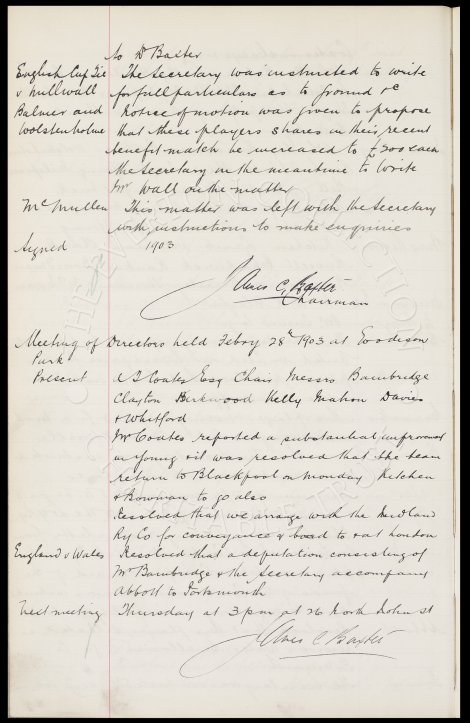 to Dr Baxter
English Cup Tie The Secretary was instructed to write
v Millwall for full particulars as to ground &c
Balmer and Notice of motion was given to propose
Wolstenholme that these players shares in their recent
benefit match be increased to £200 each
the Secretary in the meantime to write
Mr Wall on the matter
McMullen This matter was left with the Secretary
with instructions to make enquiries
Signed 1903
James C Baxter
Chairman
Meeting of Directors held Febry 28th 1903 at Goodison
Park
Present A T Coates Esq Chair Messrs Bainbridge
Clayton Kirkwood Kelly Mahon Davies
& Whitford
Mr Coates reported a substantial improvemt
in Young & it was resolved that the team
return to Blackpool on Monday Kitchen
& Bowman to go also
Resolved that we arrange with the Midland
Ry Co for conveyance & board to & at London
England v Wales Resolved that a deputation consisting of
Mr Bainbridge & the Secretary accompany
Abbott to Portsmouth
Next meeting Thursday at 3 pm at 26 North John st
James C Baxter